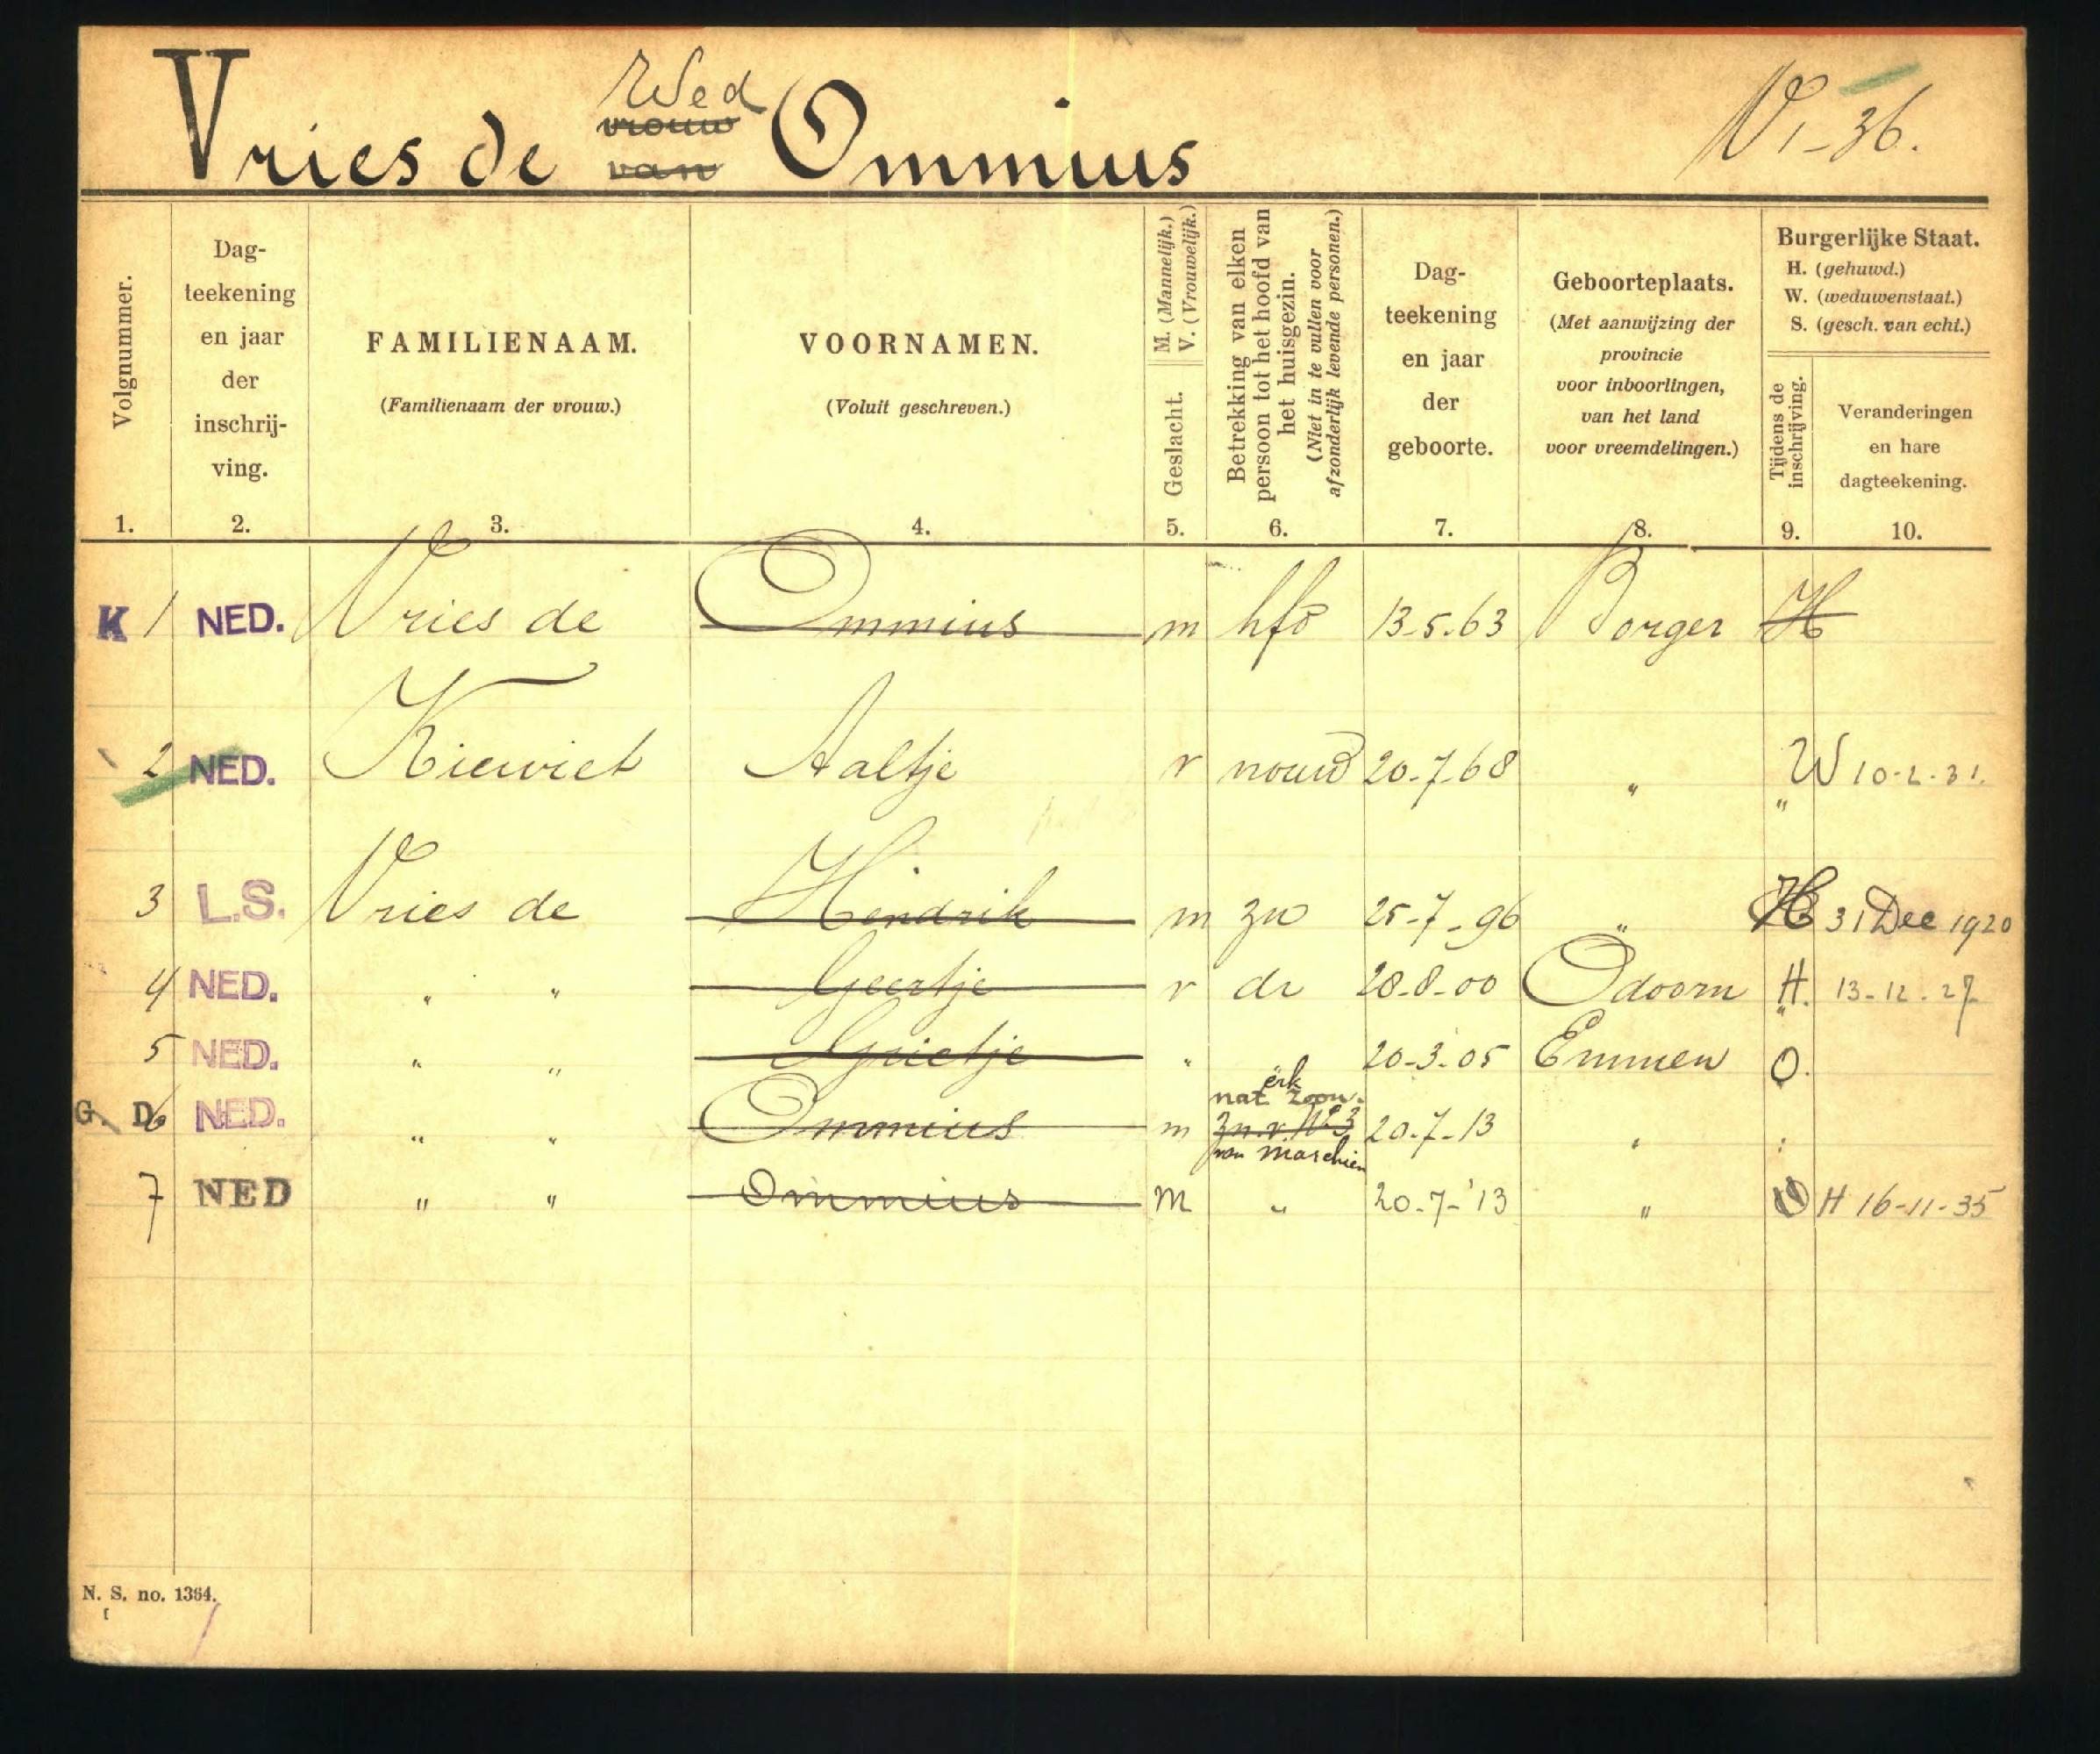 Wed
Vries de vrouw van Ommius
VI-36.
Volgnummer.
1.
Dag-
teekening
en jaar
der
inschrij-
ving.
2.
FAMILIENAAM.
(Familienaam der vrouw.)
3.
VOORNAMEN.
(Voluit geschreven.)
4.
M. (Mannelijk.)
V. (Vrouwelijk.)
Geslacht.
5.
Betrekking van elken
persoon tot het hoofd van
het huisgezin.
(Niet in te vullen voor
afzonderlijk levende personen.)
6.
Dag-
teekening
en jaar
der
geboorte.
7.
Geboorteplaats.
(Met aanwijzing der
provincie
voor inboorlingen,
van het land
voor vreemdelingen.)
8.
Burgerlijke Staat.
H. (gehuwd.)
W. (weduwenstaat.)
S. (gesch. van echt.)
Tijdens de
inschrijving.
9.
Veranderingen
en hare
dagteekening.
10.
K 1 NED. Vries de Ommius m hfd 13-5-63 Borger H
2 NED. Kiewiet Aaltje v vrouw 20-7-68 " " W 10-2-31.
3 L.S. Vries de Hendrik m zn 25-7-96 " H 31 Dec 1920
4 NED. " " Geertje v dr 28-8-00 Odoorn " H. 13-12-27
5 NED. " " Grietje " 20-3-05 Emmen O.
erk
nat zoon.
G. D. 6 NED. " " Ommius m zn. v. No 3 20-7-13 " "
van Marchien
7 NED " " Ommius M " 20-7-'13 " O H 16-11-35
N. S. no. 1364.